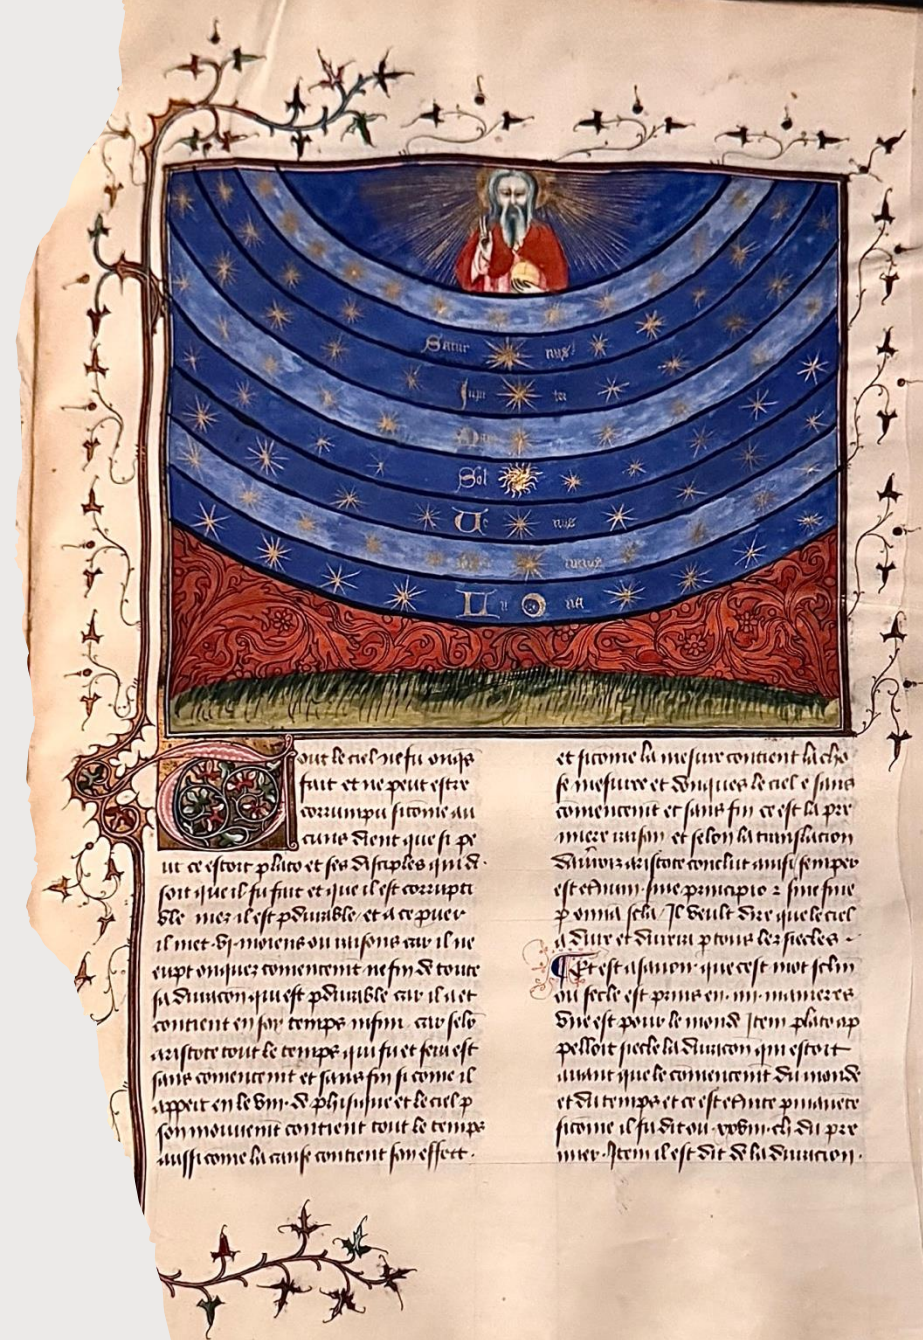 Satur nus
Jupi ter
Sol
Ve nus
curius
Lu na
Tout le ciel ne fu onqs
fait et ne peut estre
corrumpu sicome au
cuns dient que si pe
ut ce estoit plato et ses disciples qui di
soit que il fu fait et que il est corrupti
ble mes il est pdurable et a ce pver
il met .vi. moiens ou raisons car il ne
eupt onques comencemt ne fin de toute
sa duracon qui est pdurable car il a et
contient en soy temps infini car selo
aristote tout le temps qui fu et sera est
sans comencemt et sans fin si come il
appert en le viii. de phisique et le ciel p
son mouvemt contient tout le temps
aussi come la cause contient son effect.
et sicome la mesure contient la cho
se mesuree et donques le ciel e sans
comencemt et sans fin ce est la pre
miere raison et selon la translacion
aristote conclut ausi semper
est etnum sine principio 2 sine fine
p omnia scla Il veult dire que le ciel
a dure et durera p tous les siecles.
¶ Et est asavoir que cest mot sclm
ou secle est prins en .iiii. manieres
Une est pour le monde Item plato ap
pelloit siecle la duracon qui estoit
avant que le comencemt du monde
et du temps et ce est etnite pmanete
sicome il fu dit ou .xxviii. ch. du pre
mier. Item il est dit de la duracion.